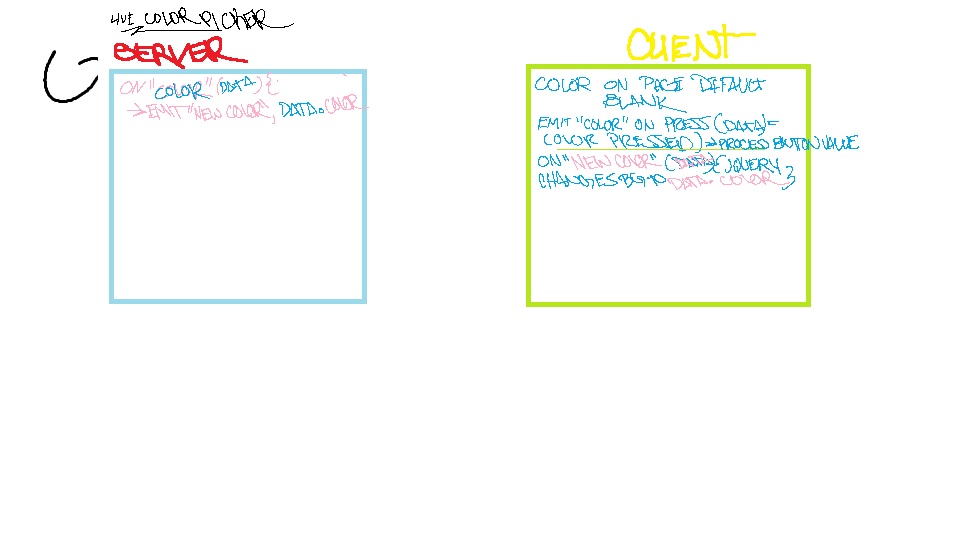 LIVE COLOR PICKER
SERVER
ON "COLOR" (DATA) {
→ EMIT "NEW COLOR", DATA.COLOR
CLIENT
COLOR ON PAGE DEFAULT
BLANK
EMIT "COLOR" ON PRESS (DATA) =
COLOR PRESSED) → PROCES BUTTON VALUE
ON "NEW COLOR" (DATA) { JQUERY
CHANGES BG TO DATA.COLOR }